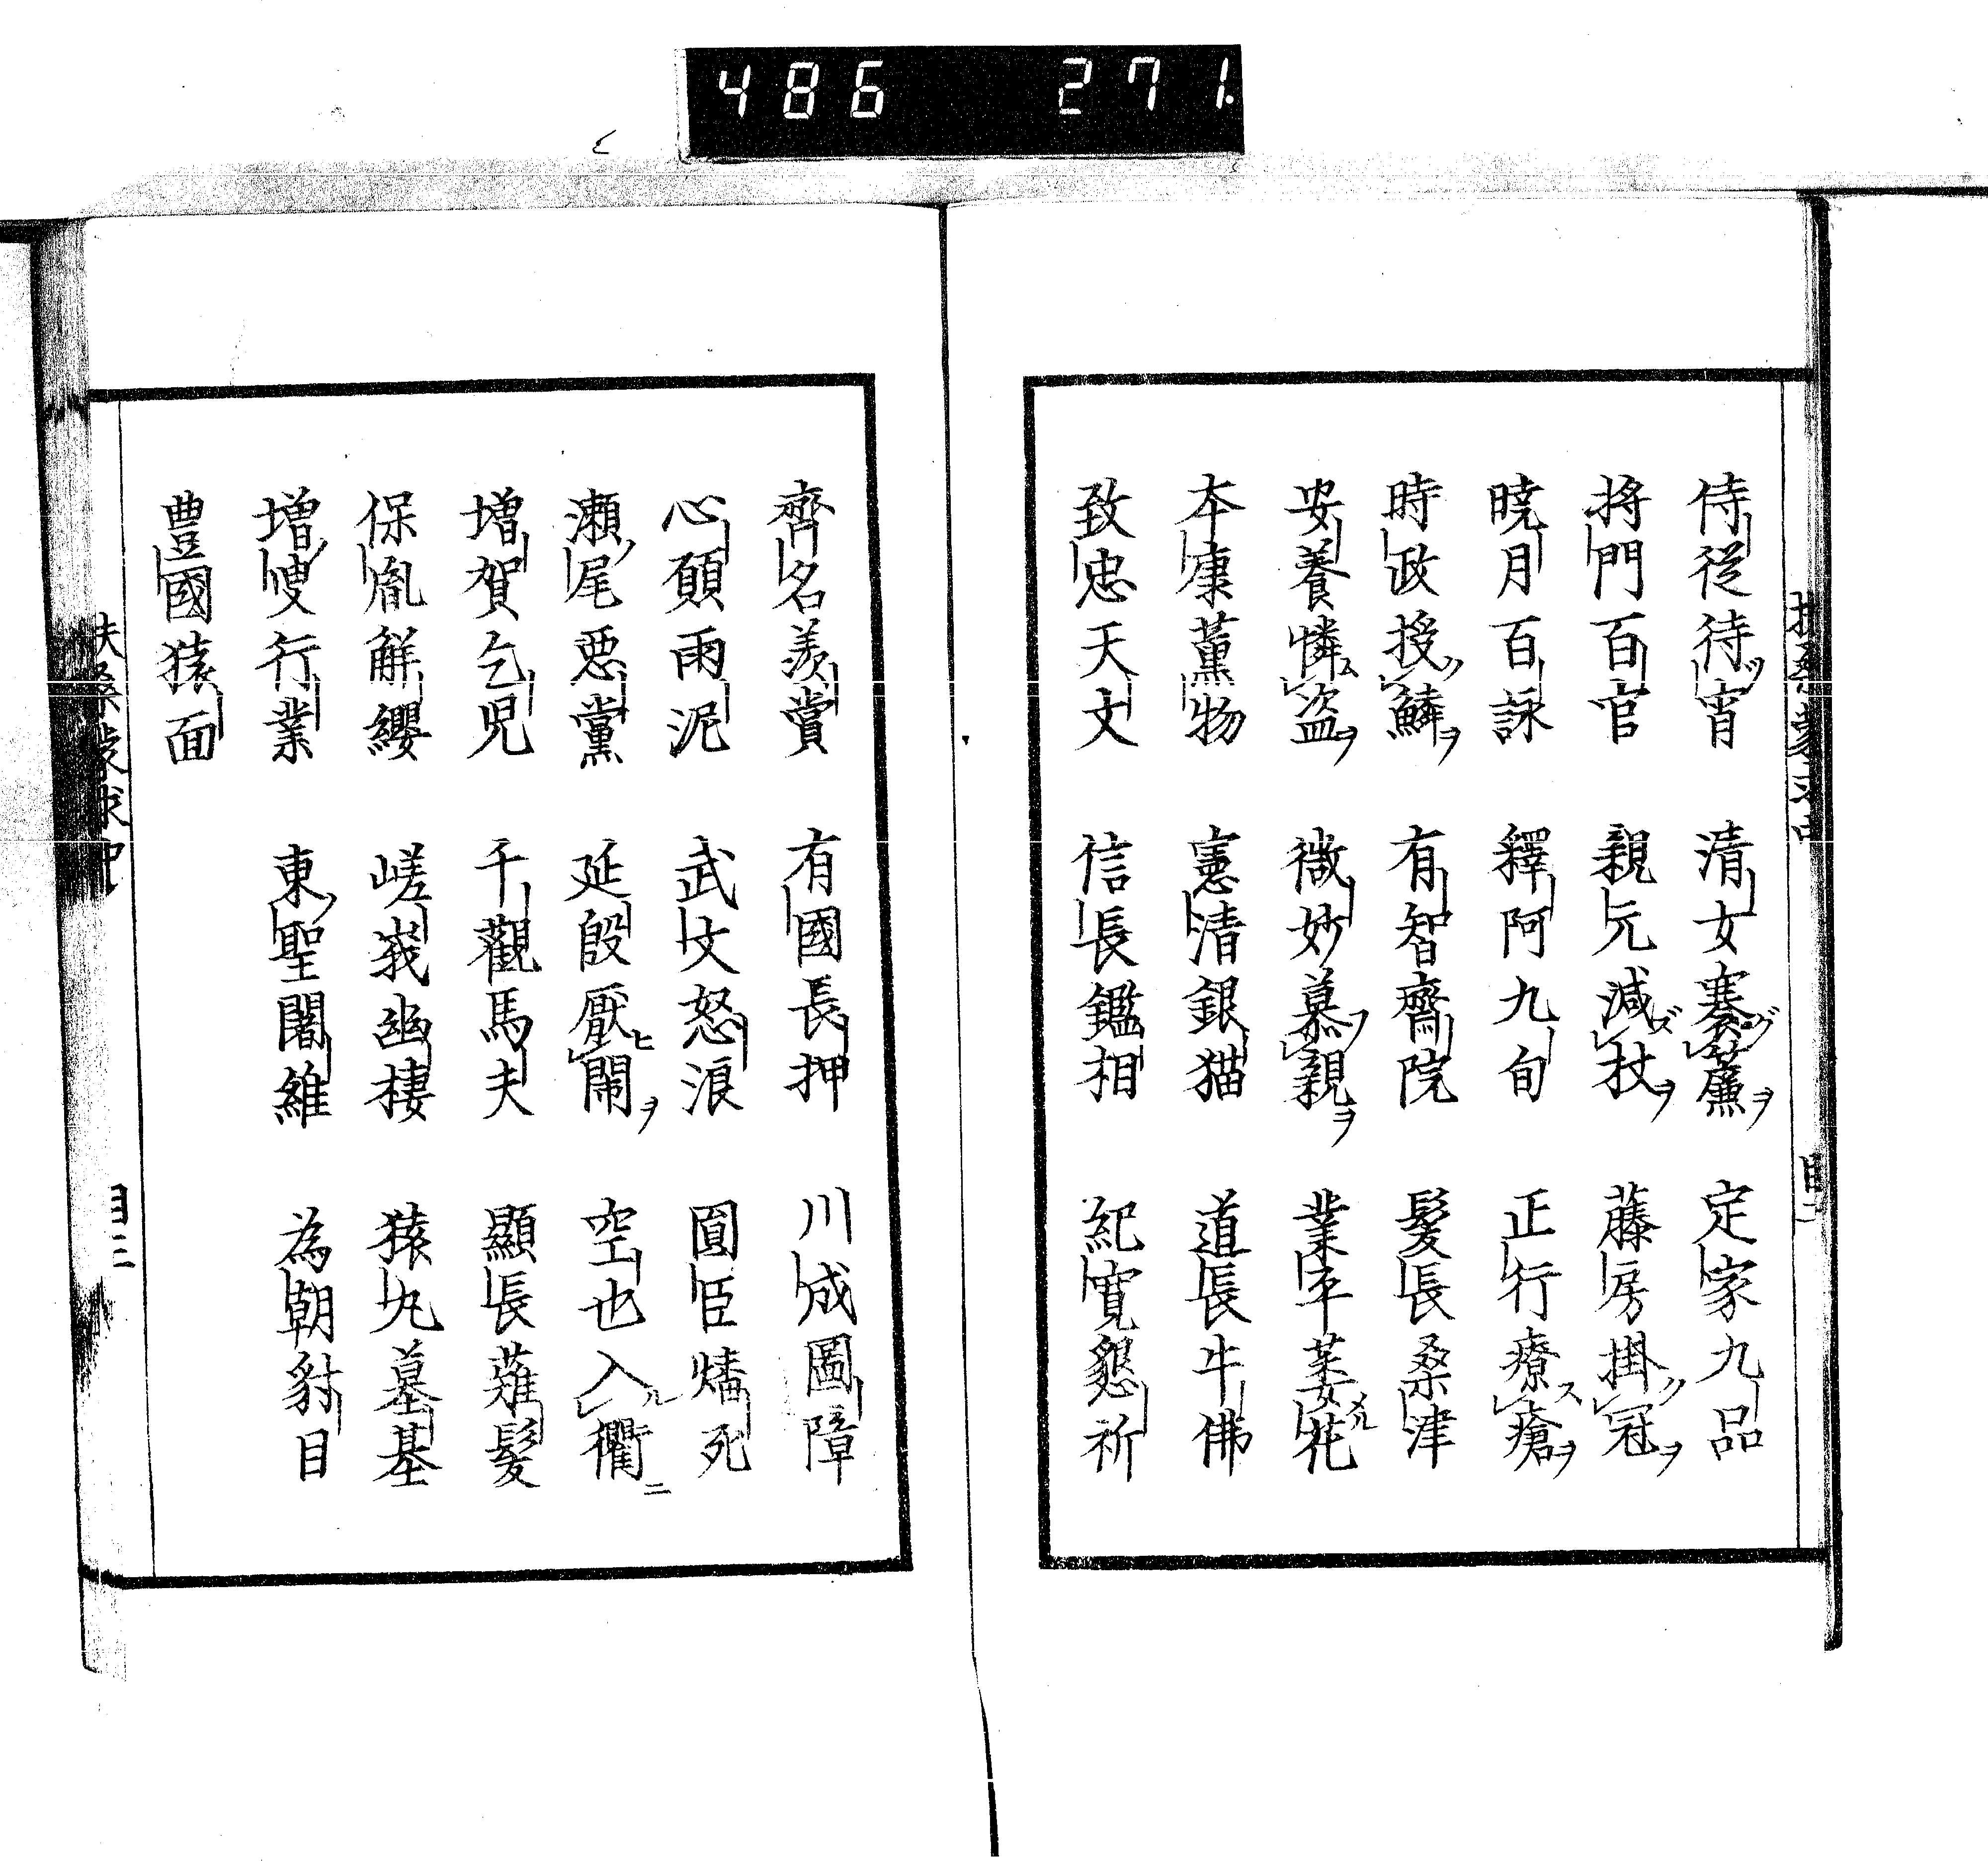 486 271.
侍從待宵 清女褰簾 定家九品
將門百官 親元減杖 藤房掛冠
曉月百詠 釋阿九旬 正行療瘡
時政授鱗 有智齋院 髮長桑津
安養憐盗 微妙慕親 業平萎花
本康薰物 憲清銀猫 道長牛佛
致忠天文 信長鑑相 紀寛懇祈
齊名羨賞 有國長押 川成圖障
心願雨泥 武文怒浪 圓臣燔死
瀬尾悪黨 延殷厭閙 空也入衢
増賀乞児 千觀馬夫 顯長薙髮
保胤解纓 嵯峩幽棲 猿丸墓基
増叟行業 東聖闍維 為朝豺目
豊國猿面
扶桑蒙求中 目三